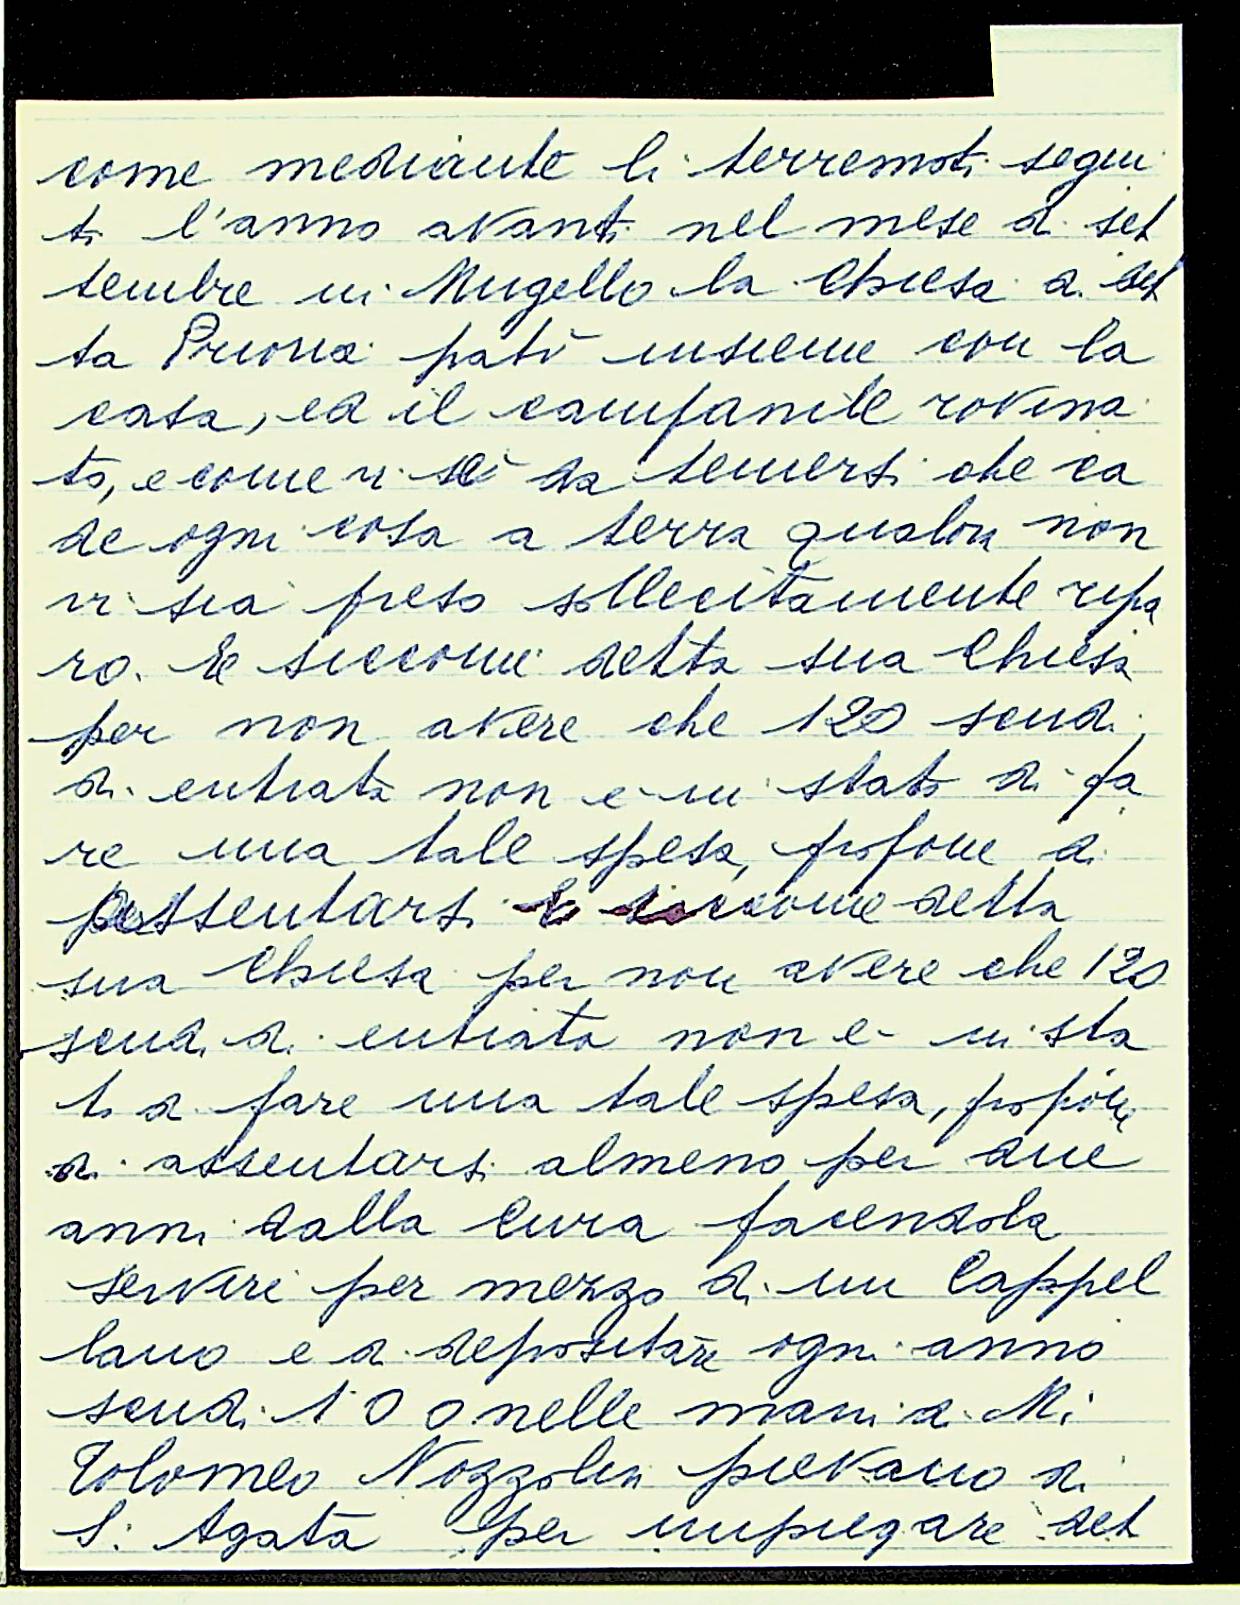 come mediante li terremoti segui
ti l'anno avanti nel mese di set
tembre in Mugello la Chiesa di det
ta Prioria patì insieme con la
casa, ed il campanile rovina
to, e come vi sii da temersi che ca
de ogni cosa a terra qualora non
vi sia preso sollecitamente ripa
ro. E siccome detta sua Chiesa
per non avere che 120 scudi
di entrata non è in stato di fa
re una tale spesa, propone di
assentarsi E siccome detta
sua Chiesa per non avere che 120
scudi di entrata non è in sta
to di fare una tale spesa, propone
di assentarsi almeno per due
anni dalla Cura facendola
servire per mezzo di un Cappel
lano e di depositare ogni anno
scudi 100 nelle mani di Mi
Tolomeo Nozzolini pievano di
S. Agata per impiegare det